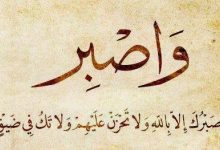 وَاصْبِر
صَبْرُكَ إِلاَّ بِاللّهِ وَلاَ تَحْزَنْ عَلَيْهِمْ وَلاَ تَكُ فِي ضَيْقٍ